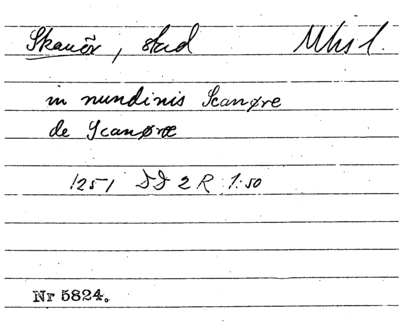 Skanör, stad
in nundinis Scanøre
de Scanøræ
1251 DD 2 R 1:50
Nr 5824.